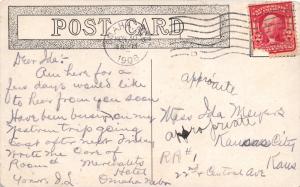 POST CARD
OMAHA
1908
Dear Ida:
Am here for a
few days would like
to hear from you soon
Have been busy on my
Western trip going
East after next Monday
Write me Care of
Room Merchants
Hotel
Yours I.J. Omaha Nebr
Appreciate
Miss Ida Meyers
appropriate
Kansas City,
R.R. #1 Kans
22nd & Central Ave